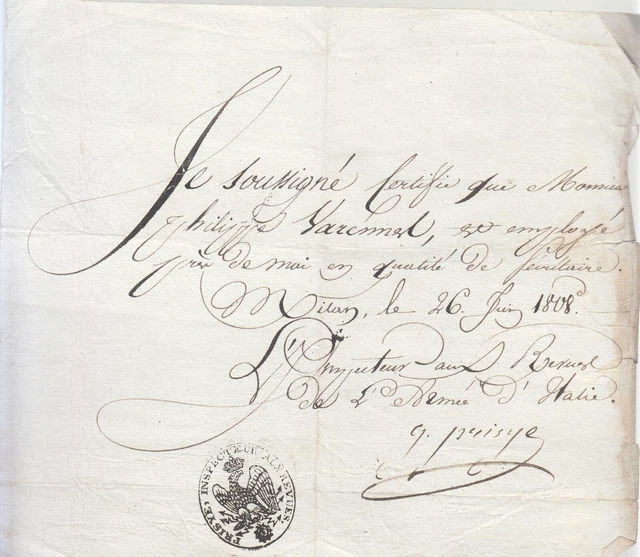 Je soussigné Certifie que Monsieur
philippe Varennes, est employé
près de moi en qualité de Sécrétaire.
Milan, le 26. Juin 1808.
L'Inspecteur aux Revues
de L'Armée d'Italie.
g. prisye
PRISYE, INSPECTEUR AUX REVUES.